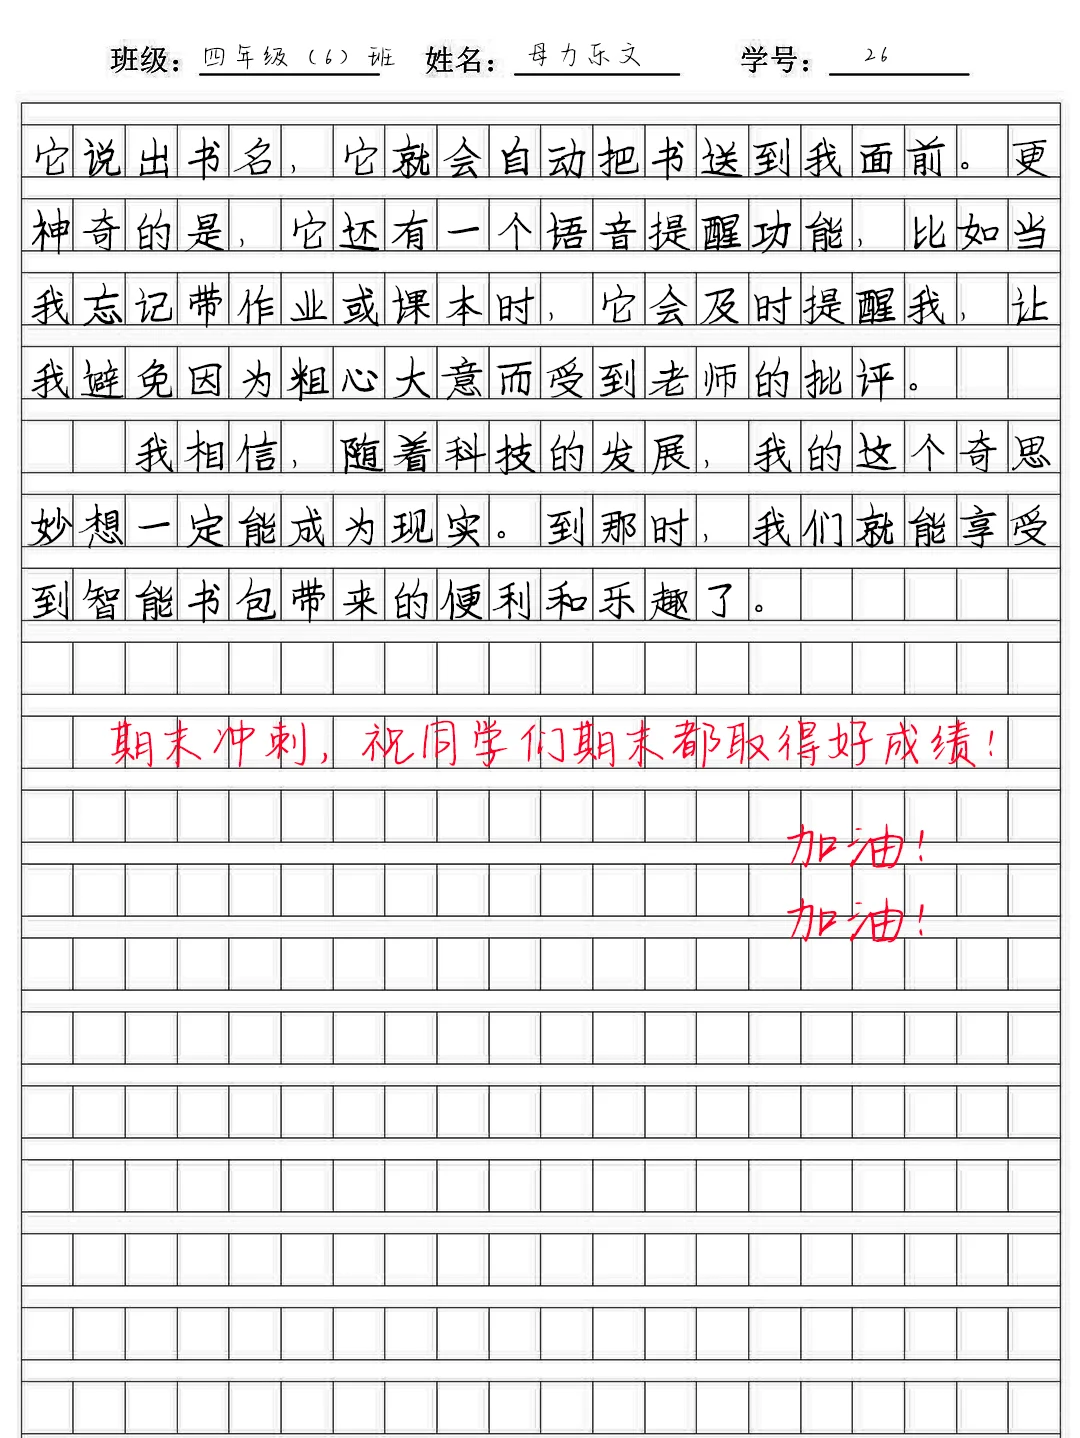 班级：四年级（6）班 姓名：母力乐文 学号：26
它说出书名，它就会自动把书送到我面前。更
神奇的是，它还有一个语音提醒功能，比如当
我忘记带作业或课本时，它会及时提醒我，让
我避免因为粗心大意而受到老师的批评。
我相信，随着科技的发展，我的这个奇思
妙想一定能成为现实。到那时，我们就能享受
到智能书包带来的便利和乐趣了。
期末冲刺，祝同学们期末都取得好成绩！
加油！
加油！